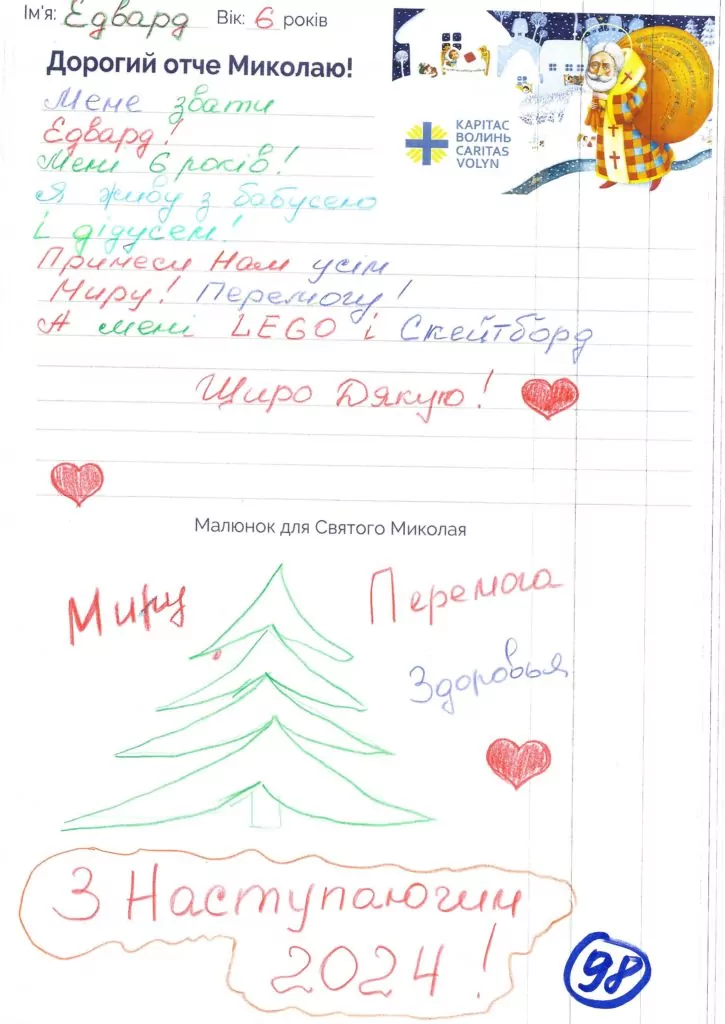 Ім'я: Едвард Вік: 6 років
Дорогий отче Миколаю!
КАРІТАС
ВОЛИНЬ
CARITAS
VOLYN
Мене звати
Едвард!
Мені 6 років!
Я живу з бабусею
і дідусем!
Принеси Нам усім
Миру! Перемогу!
А мені LEGO і Скейтборд
Щиро Дякую!
Малюнок для Святого Миколая
Миру Перемога
Здоровья
З Наступаючим
2024!
98